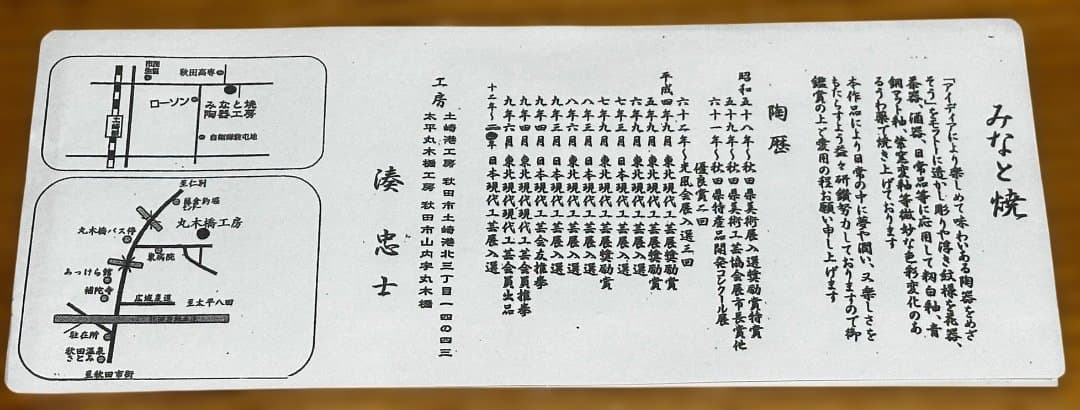 みなと焼
「アイディアにより楽しめて味わいある陶器をめざ
そう」をモットーに透かし彫りや浮き紋様を花器、
茶器、酒器、日常品等に応用して籾白釉、青
銅マット釉、紫窒変釉等微妙な色彩変化のあ
るうわ薬で焼き上げております
本作品により日常の中に夢や潤い、又楽しさを
もたらすよう益々研鑽努力しておりますので御
鑑賞の上ご愛用の程お願い申し上げます
陶歴
昭和五十八年〜秋田県美術展入選奨励賞特賞
五十九年〜秋田県美術工芸協会展市長賞他
六十一年〜秋田県特産品開発コンクール展
優良賞二回
六十二年〜光風会展入選三回
平成四年九月 東北現代工芸展入選
五年九月 東北現代工芸展奨励賞
六年九月 東北現代工芸展入選
七年九月 東北現代工芸展奨励賞
八年三月 日本現代工芸展入選
九年三月 日本現代工芸展入選
九年四月 日本現代工芸会友推挙
九年四月 東北現代工芸会員推挙
九年六月 東北現代工芸会員出品
十二年〜二〇年 日本現代工芸展入選
湊忠士
工房 土崎港工房 秋田市土崎港北三丁目一四の四三
太平丸木橋工房 秋田市山内字丸木橋
秋田高専
みなと焼
陶器工房
ローソン
自衛隊駐屯地
土崎駅
至仁別
丸木橋工房
丸木橋バス停
東病院
みっけら館
補陀寺
広域農道
至太平八田
駐在所
秋田温泉
さとみ
至秋田市街